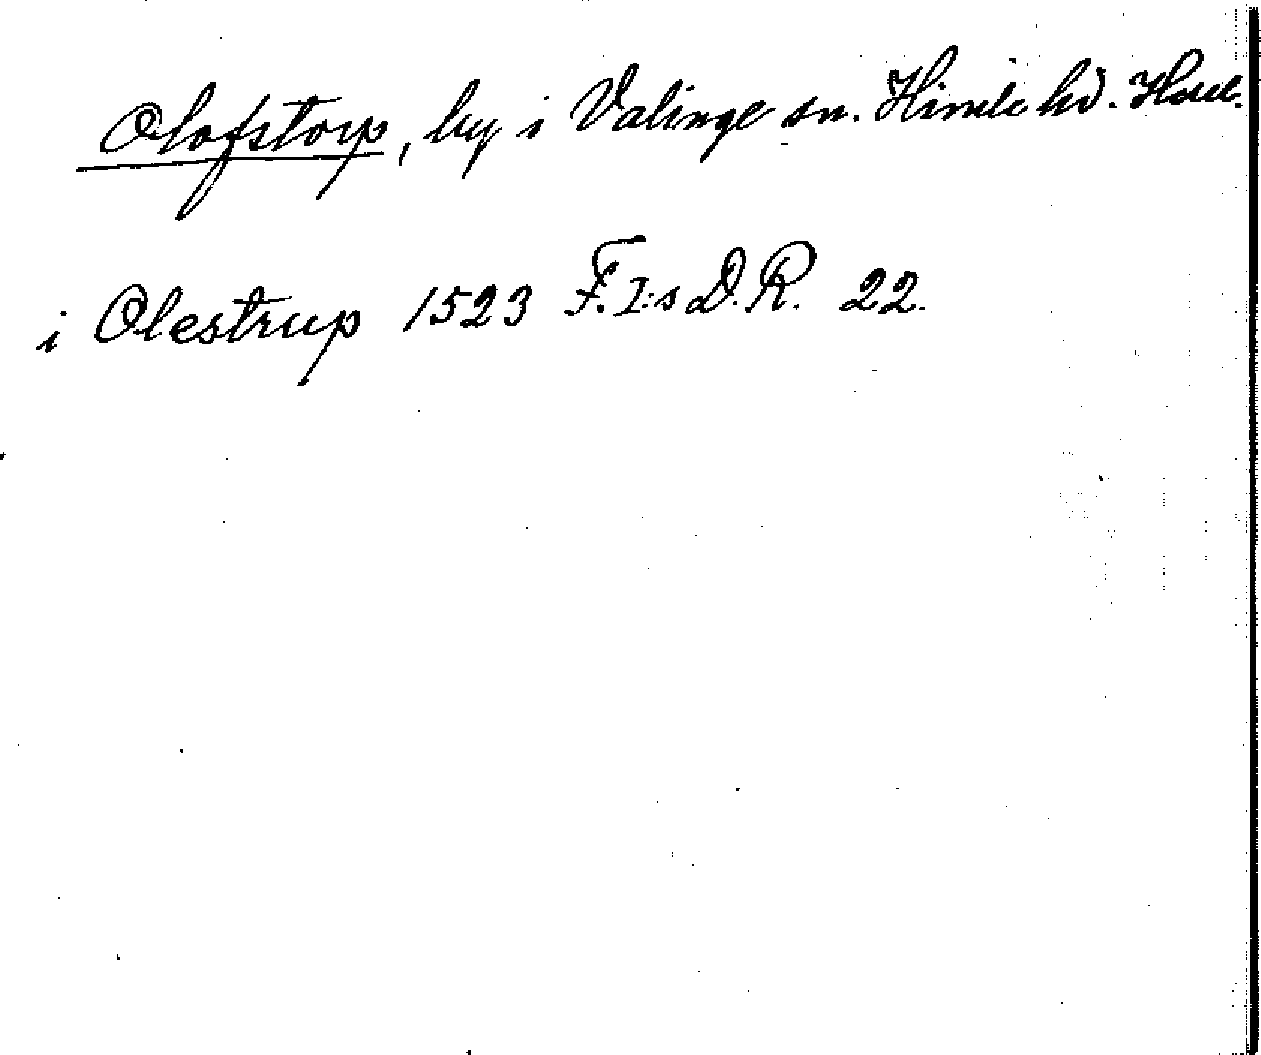 Olofstorp, by i Valinge sn. Himle hd. Hall.
i Olestrup 1523 F. I:s D. R. 22.